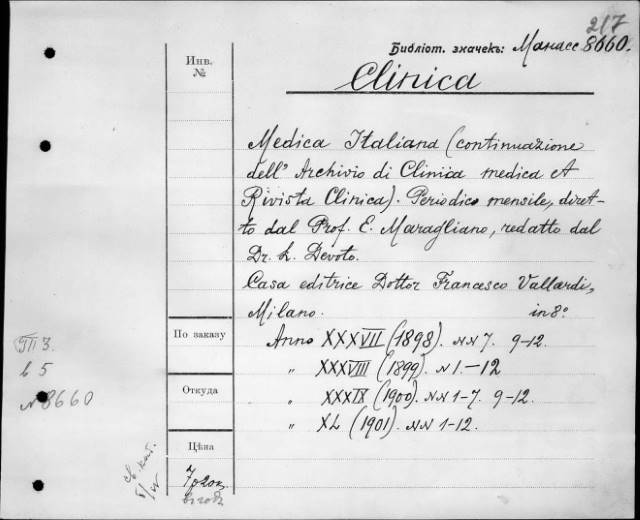 217
Библіот. значекъ: Манасс 8660.
Инв.
№
Clinica
Medica Italiana (continuazione
dell' Archivio di Clinica medica et
Rivista Clinica). Periodico mensile, diret-
to dal Prof. E. Maragliano, redatto dal
Dr. L. Devoto.
Casa editrice Dottor Francesco Vallardi,
Milano. in 8°
По заказу
Anno XXXVII (1898). NN 7. 9-12.
" XXXVIII (1899). N 1.-12
Откуда
" XXXIX (1900). NN 1-7. 9-12.
" XL (1901). NN 1-12.
Цѣна
III 3.
b 5
N 8660